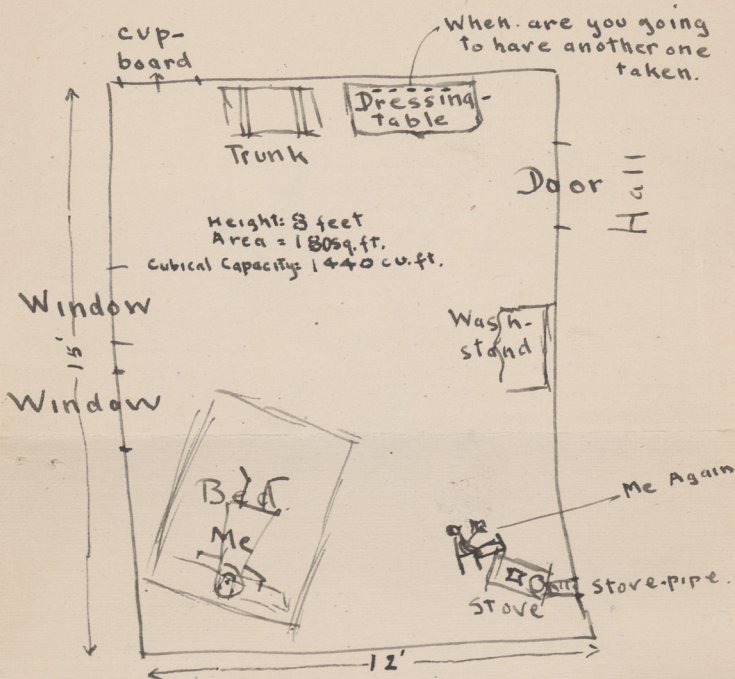 cup-
board
When are you going
to have another one
taken.
Dressing-
table
Trunk
Door
Hall
Height: 8 feet
Area = 180sq.ft.
Cubical Capacity: 1440 cu.ft.
Window
15'
Wash-
stand
Window
Bed
Me
Me Again
Stove-pipe.
Stove
12'